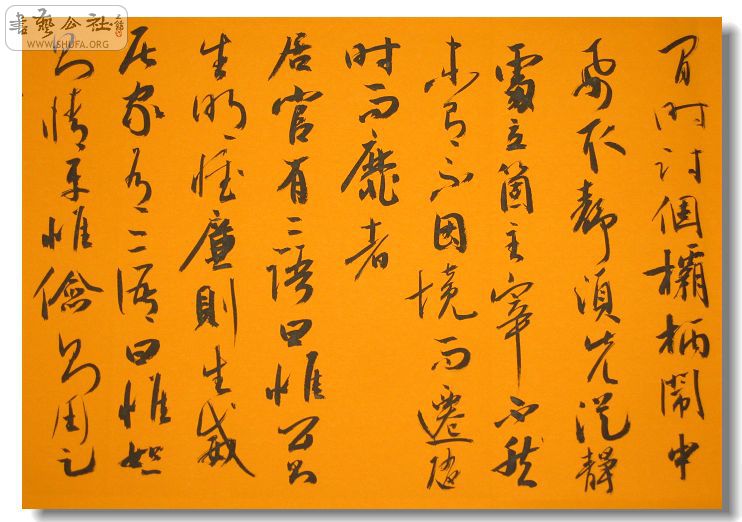 書藝公社
WWW.SHUFA.ORG
间时讨個欛柄鬧中
要取静須先從靜
處立箇主宰不然
未有不因境而遷随
时而靡者
居官有二語曰惟公则
生明惟廉則生威
居家有二語曰惟恕
则情平惟儉则用足